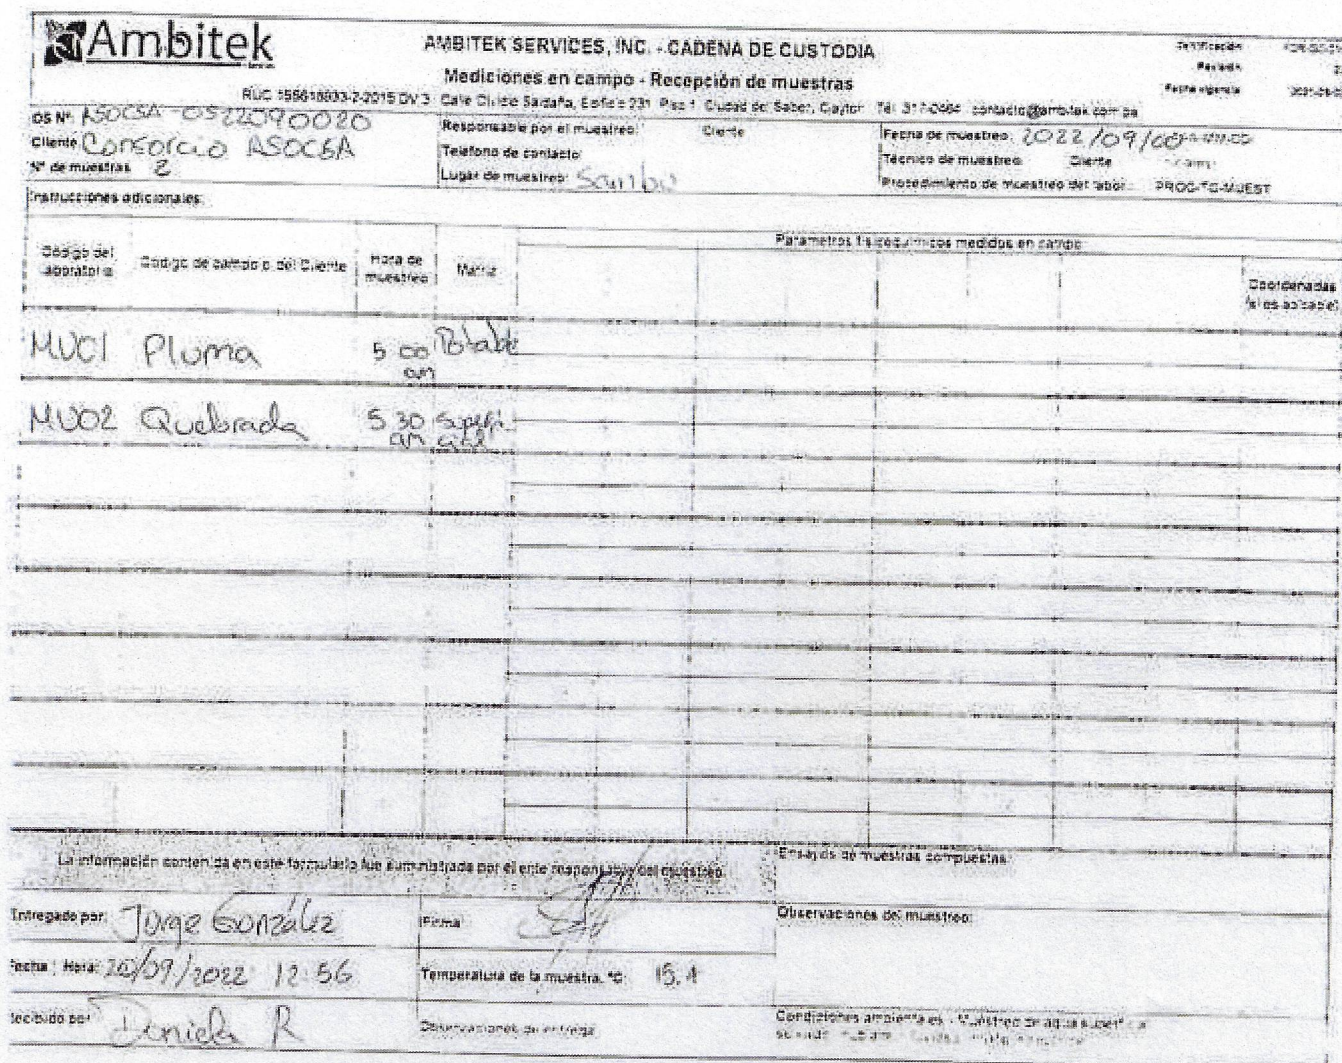 Ambitek
AMBITEK SERVICES, INC. - CADENA DE CUSTODIA
Mediciones en campo - Recepción de muestras
Revisión
Fecha vigencia
RUC 155618633-2-2015 DV 3 Ciudad del Saber, Clayton Tel
OS Nº ASOCSA-0522090020
Cliente Consorcio ASOCSA
Nº de muestras 2
Responsable por el muestreo: Cliente
Teléfono de contacto:
Lugar de muestreo: Sambú
Fecha de muestreo: 2022/09/
Técnico de muestreo: Cliente
Procedimiento de muestreo del labor. PROC-TG-MUEST
Instrucciones adicionales:
Parametros fisicoquímicos medidos en campo
Código del laboratorio
Código de campo o del Cliente
Hora de muestreo
Matriz
Coordenadas
(si es aplicable)
MU01 Pluma 5 00 am Potable
MU02 Quebrada 5 30 am Superficial
La información contenida en este formulario fue suministrada por el ente responsable del muestreo.
Ensayos de muestras compuestas:
Entregado por: Jorge González
Firma
Observaciones del muestreo:
Fecha / Hora: 20/09/2022 12 56
Temperatura de la muestra, °C: 15.1
Recibido por Daniela R
Observaciones de entrega
Condiciones ambientales - Muestreo de agua